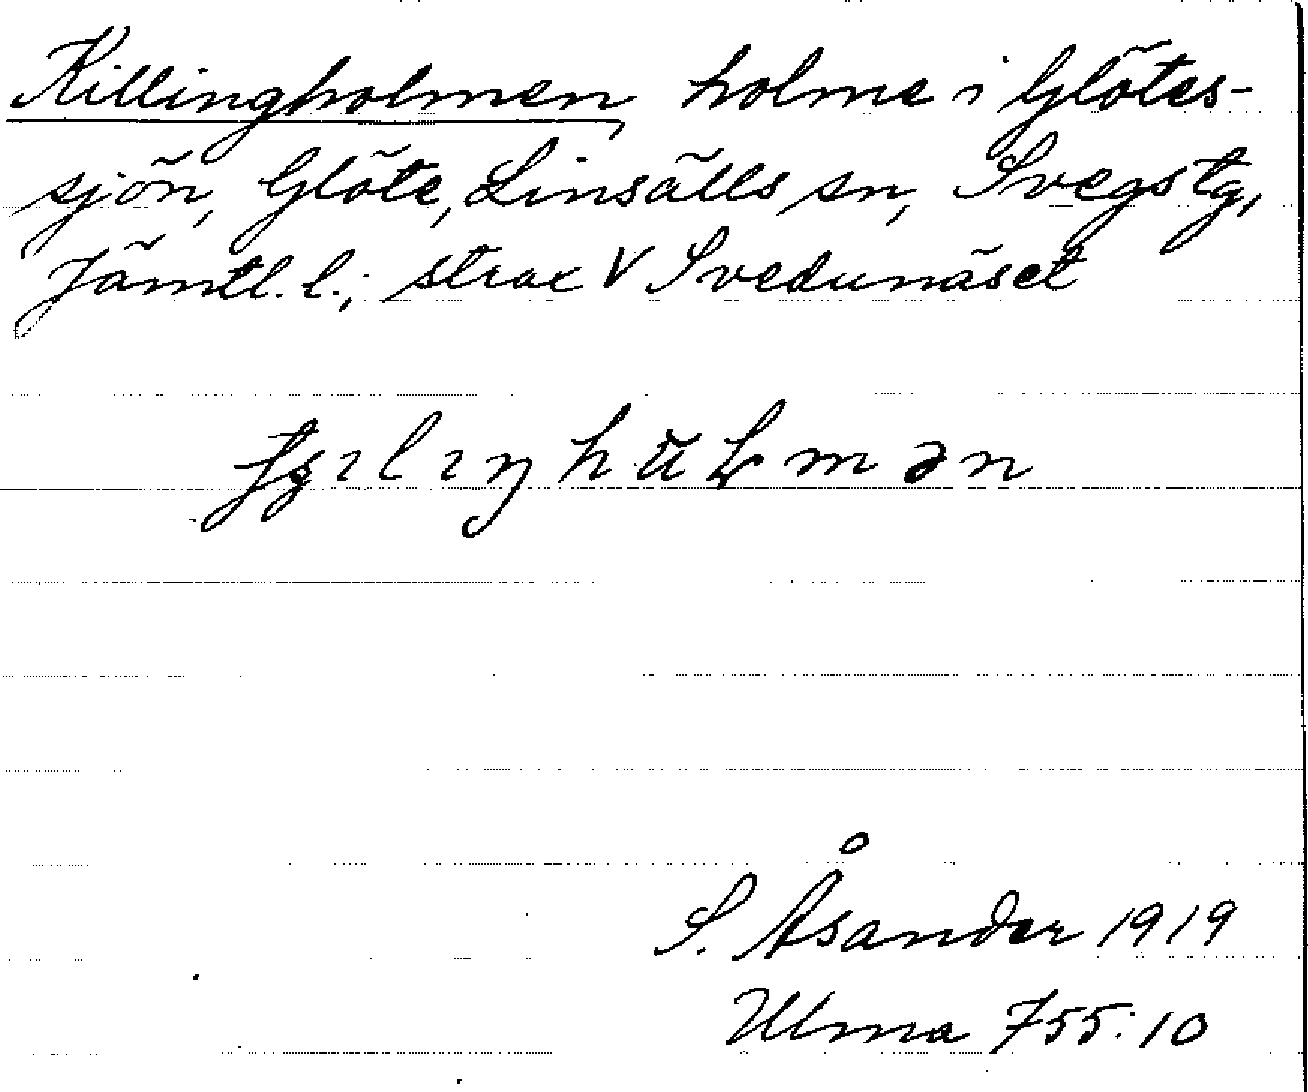 Killingholmen, holme i Glötes-
sjön, Glöte, Linsälls sn, Svegs tg,
Jämtl. l.; strax V Svedunäset
S. Åsander 1919
Ulma 755:10